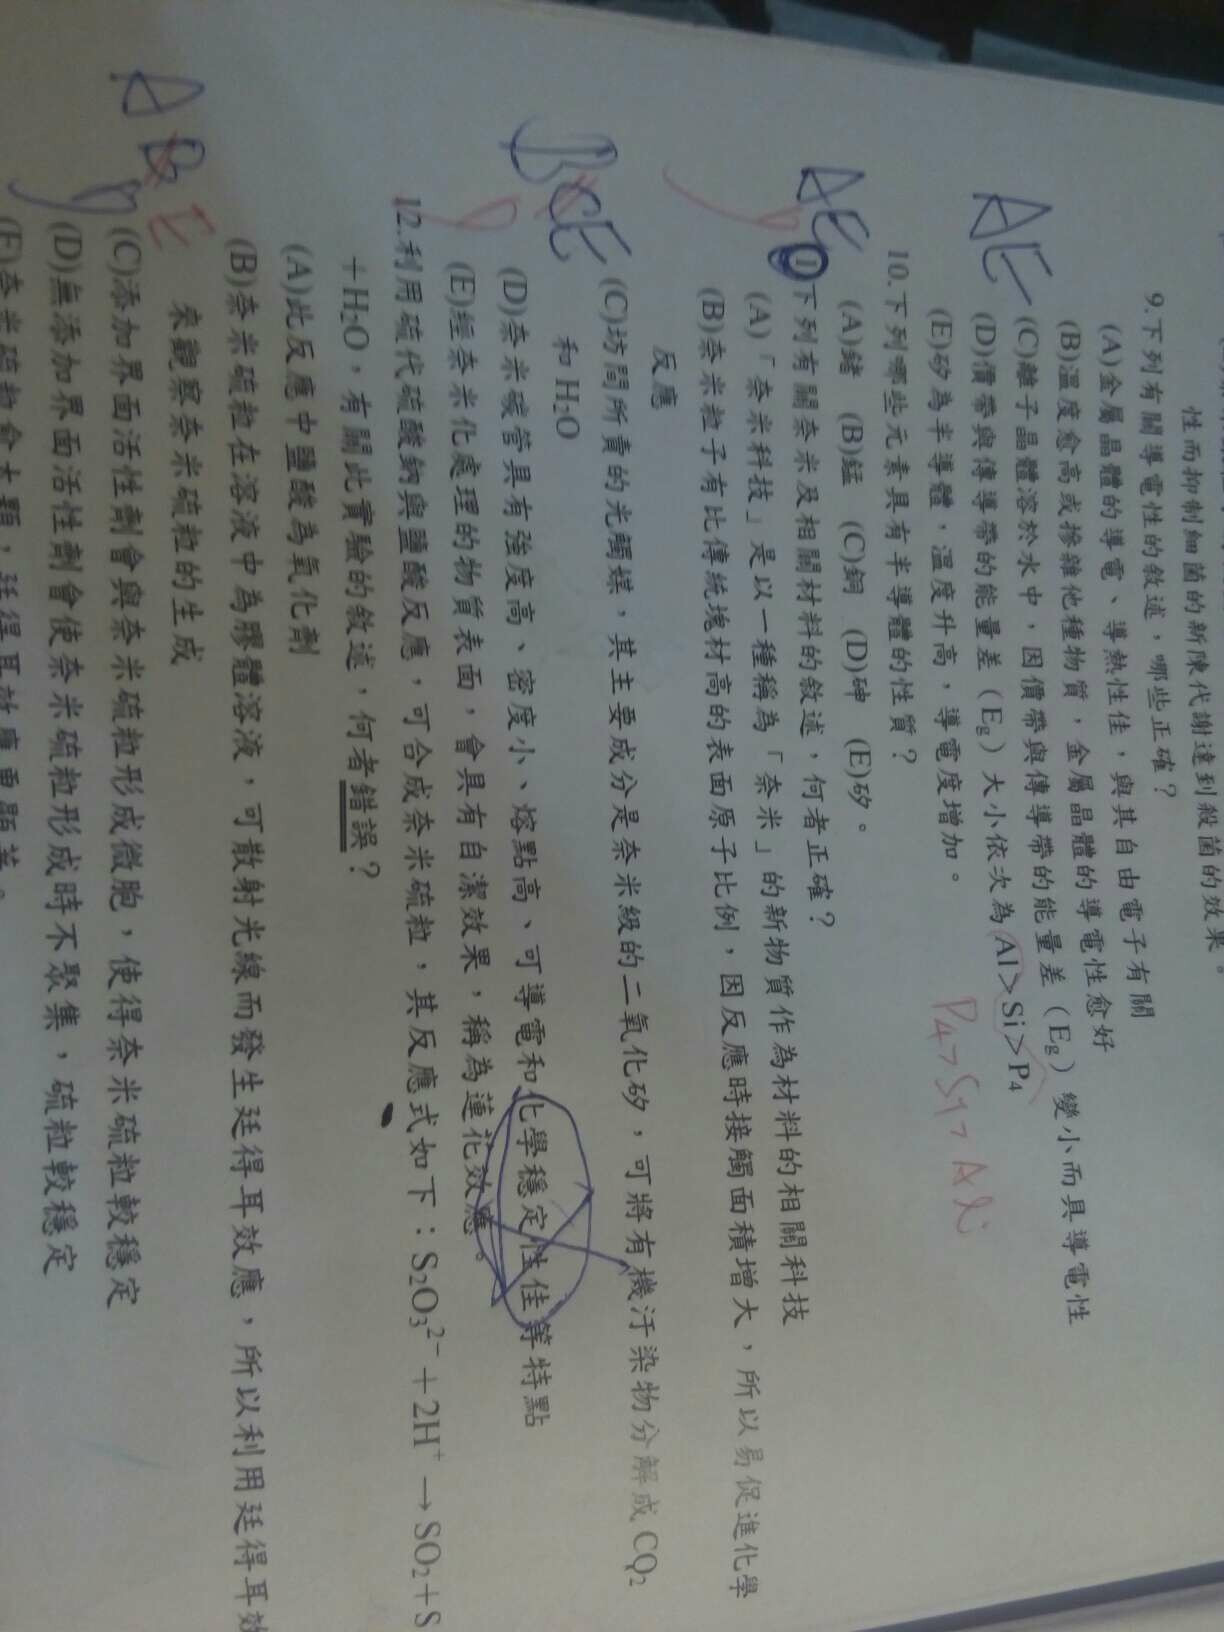 性而抑制細菌的新陳代謝達到殺菌的效果。
9.下列有關導電性的敘述，哪些正確？
(A)金屬晶體的導電、導熱性佳，與其自由電子有關
(B)溫度愈高或摻雜他種物質，金屬晶體的導電性愈好
(C)離子晶體溶於水中，因價帶與傳導帶的能量差（Eg）變小而具導電性
AE
(D)價帶與傳導帶的能量差（Eg）大小依次為Al＞Si＞P4
P4>Si>Al
(E)矽為半導體，溫度升高，導電度增加。
10.下列哪些元素具有半導體的性質？
AE
D
(A)鍺 (B)錳 (C)銅 (D)砷 (E)矽。
11下列有關奈米及相關材料的敘述，何者正確？
(A)「奈米科技」是以一種稱為「奈米」的新物質作為材料的相關科技
(B)奈米粒子有比傳統塊材高的表面原子比例，因反應時接觸面積增大，所以易促進化學
反應
(C)坊間所賣的光觸媒，其主要成分是奈米級的二氧化矽，可將有機汙染物分解成CO2
和H2O
BCE
D
(D)奈米碳管具有強度高、密度小、熔點高、可導電和化學穩定性佳等特點
(E)經奈米化處理的物質表面，會具有自潔效果，稱為蓮花效應。
12.利用硫代硫酸鈉與鹽酸反應，可合成奈米硫粒，其反應式如下：S2O3²⁻＋2H⁺→SO2＋S
＋H2O，有關此實驗的敘述，何者錯誤？
(A)此反應中鹽酸為氧化劑
(B)奈米硫粒在溶液中為膠體溶液，可散射光線而發生廷得耳效應，所以利用廷得耳效
來觀察奈米硫粒的生成
AB
E
(C)添加界面活性劑會與奈米硫粒形成微胞，使得奈米硫粒較穩定
D
(D)無添加界面活性劑會使奈米硫粒形成時不聚集，硫粒較穩定
(E)奈米硫粒愈大顆，廷得耳效應更顯著。